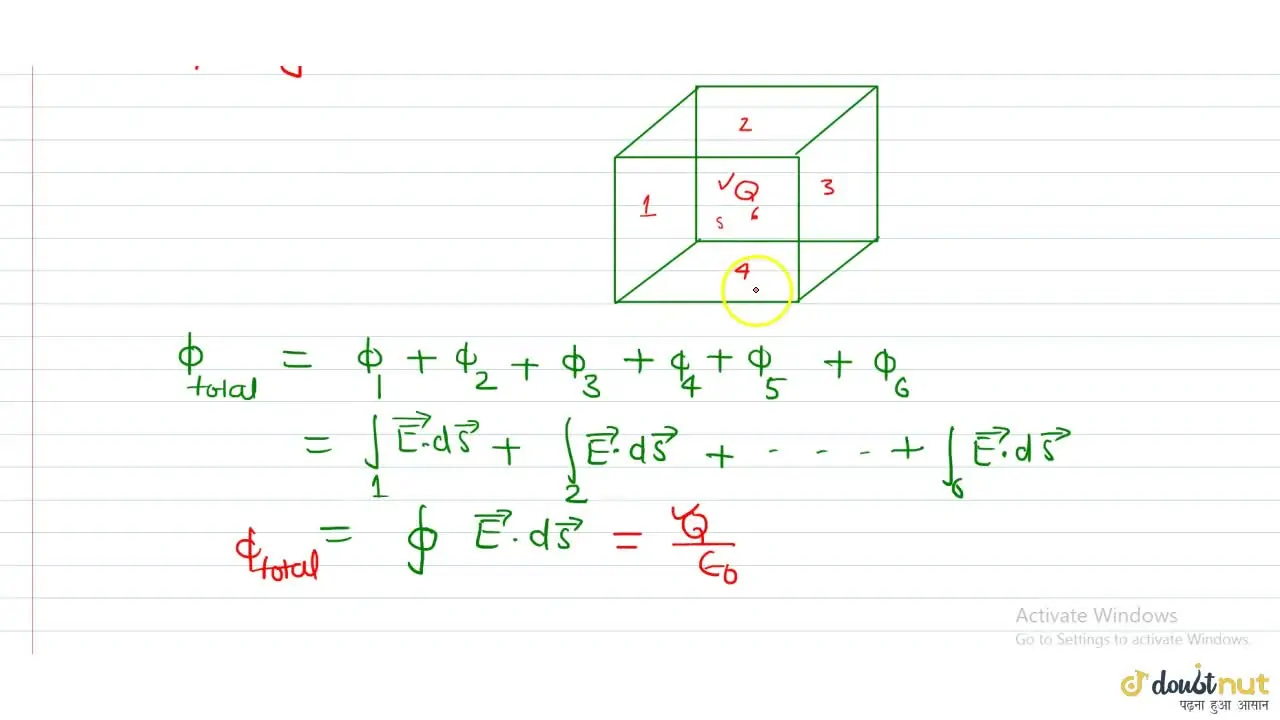 2
Q
3
1
5 6
4
ϕ_total = ϕ_1 + ϕ_2 + ϕ_3 + ϕ_4 + ϕ_5 + ϕ_6
= ∫_1 E⃗·ds⃗ + ∫_2 E⃗·ds⃗ + · · · + ∫_6 E⃗·ds⃗
ϕ_total = ∮ E⃗·ds⃗ = Q/ϵ_0
Activate Windows
Go to Settings to activate Windows.
doubtnut
पढ़ना हुआ आसान